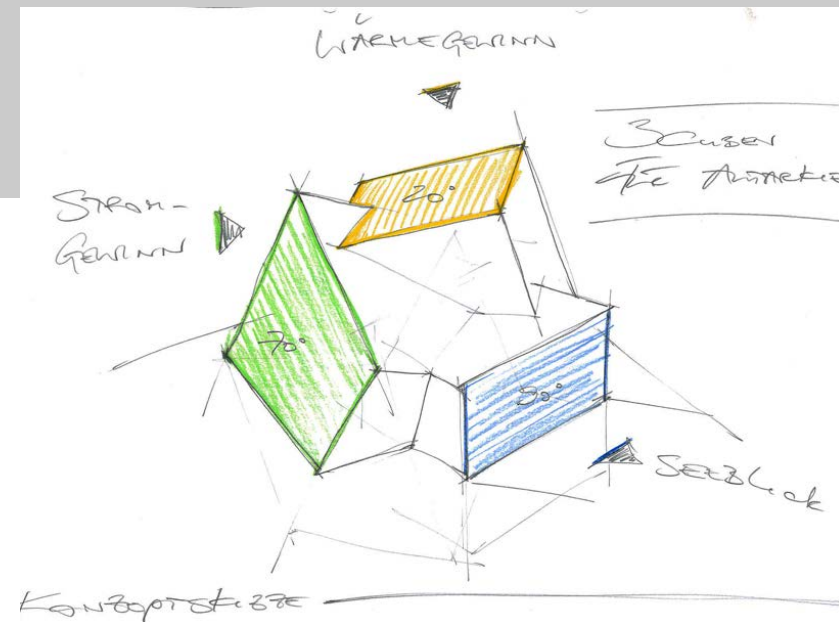 WÄRMEGEWINN
3 CUBEN
FÜR AUTARKIE
STROM-
GEWINN
20°
70°
90°
SEEBLick
KONZEPTSKIZZE